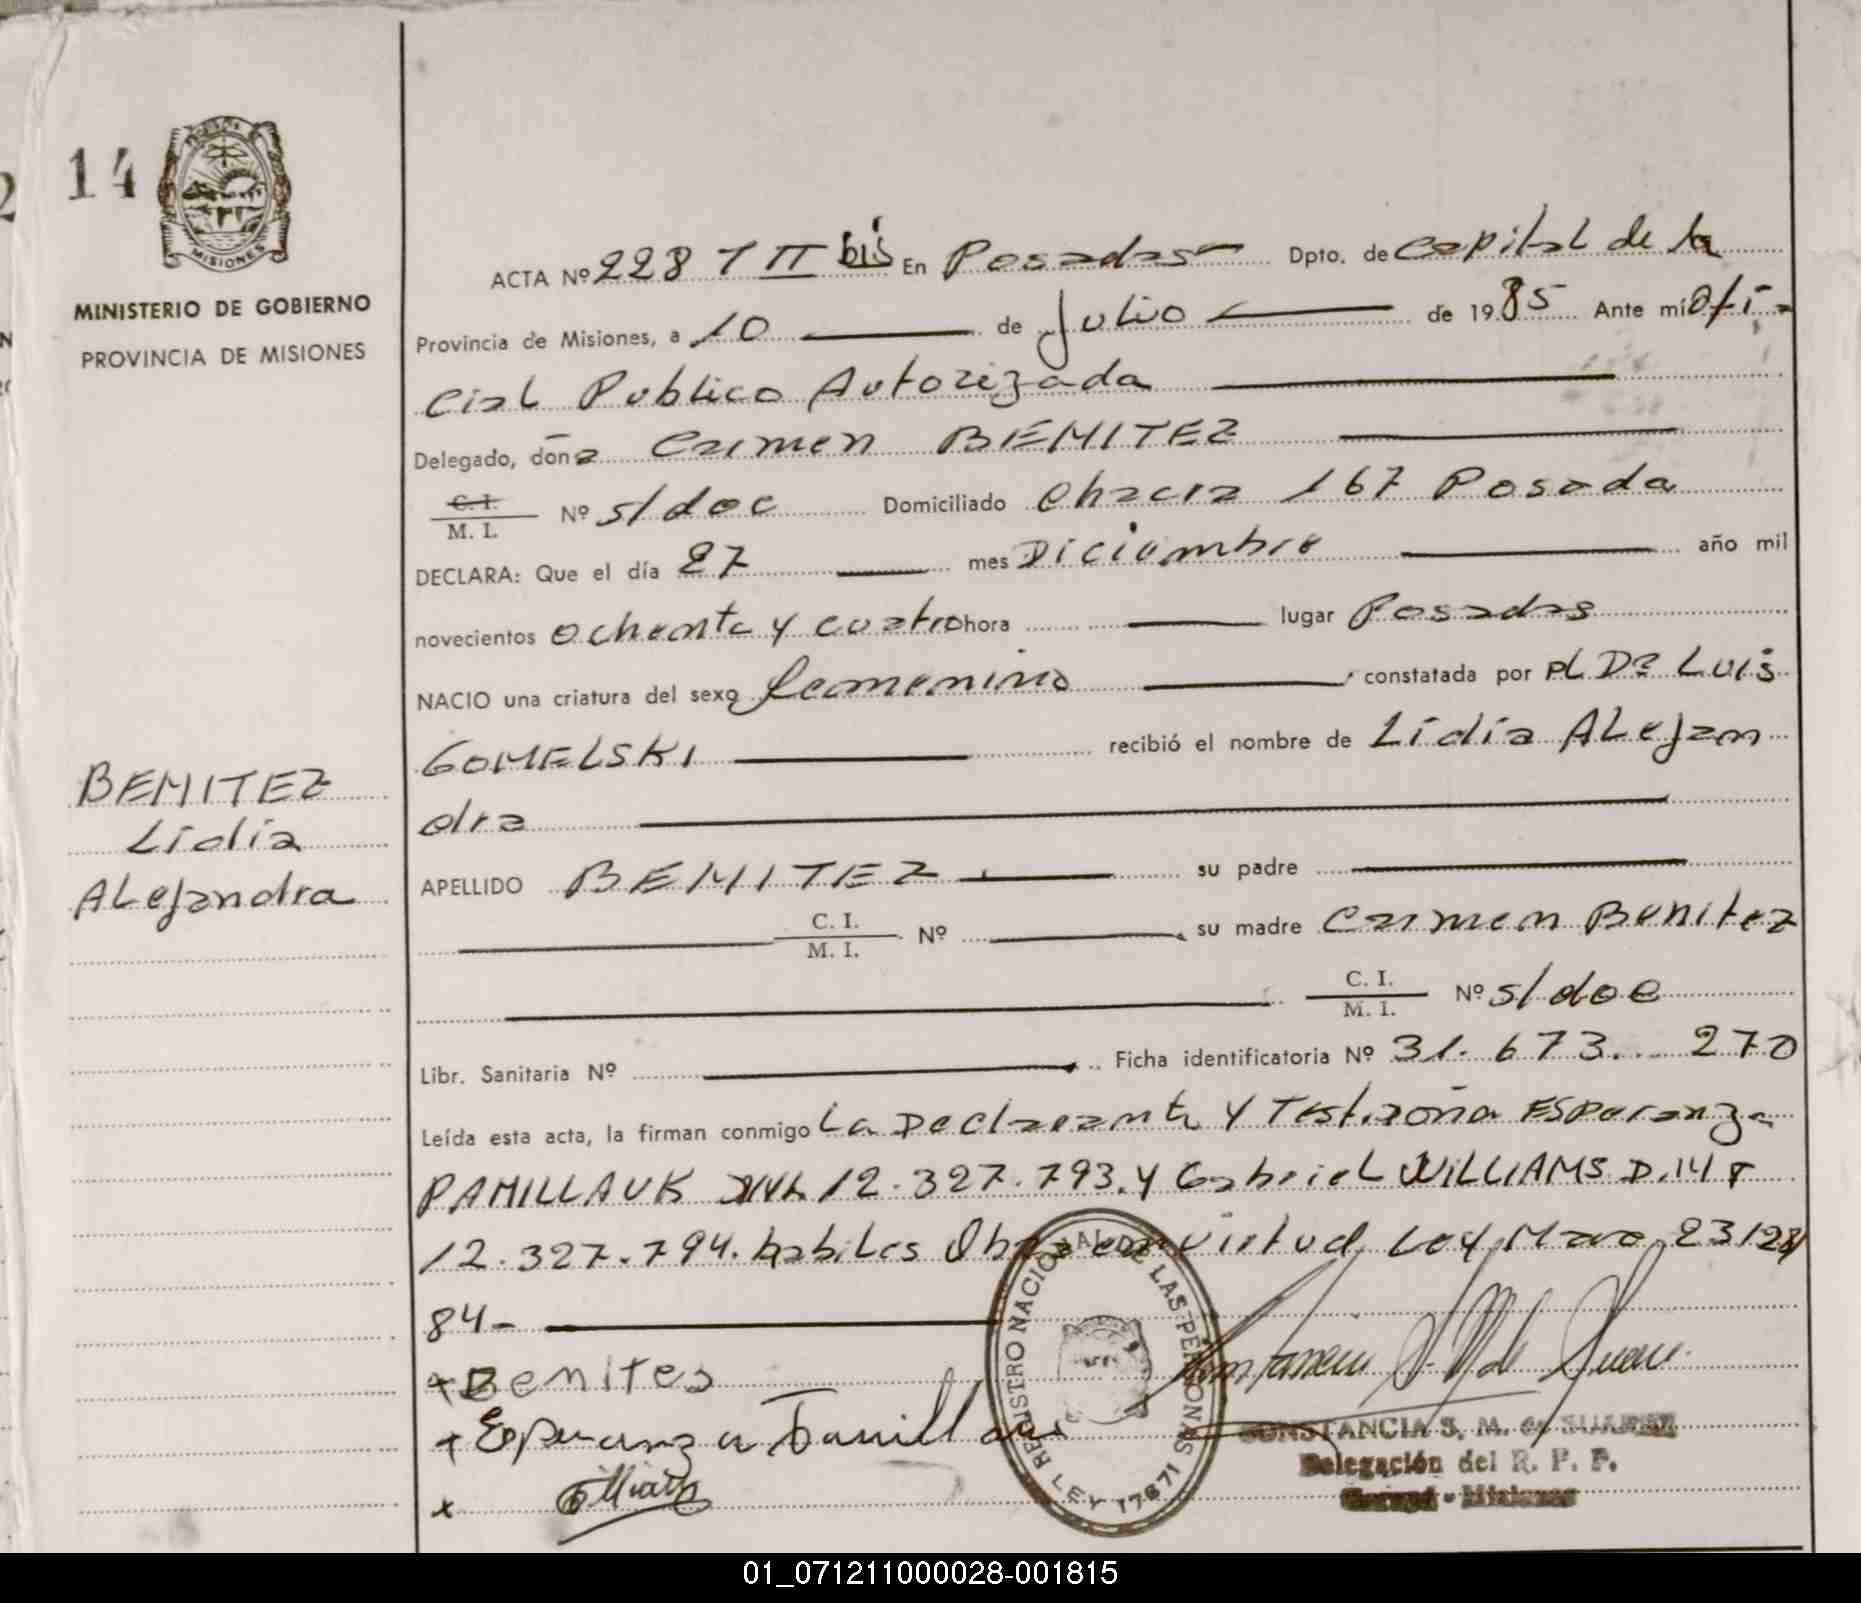 14
MISIONES
MINISTERIO DE GOBIERNO
PROVINCIA DE MISIONES
BENITEZ
Lidia
ALejandra
ACTA Nº 228 T II bis En Posadas Dpto. de Capital de la
Provincia de Misiones, a 10 de Julio de 1985 Ante mí Ofi-
cial Publico Autorizada
Delegado, doña Carmen BENITEZ
C. I.
M. I. Nº s/doc Domiciliado Chacra 167 Posada
DECLARA: Que el día 27 mes Diciembre año mil
novecientos ochenta y cuatro hora lugar Posadas
NACIO una criatura del sexo femenino constatada por pL Dr Luis
GOMELSKI recibió el nombre de Lidia ALejan
dra
APELLIDO BENITEZ su padre
C. I.
M. I. Nº su madre Carmen Benitez
C. I.
M. I. Nº s/doc
Libr. Sanitaria Nº Ficha identificatoria Nº 31.673.270
Leída esta acta, la firman conmigo La Declarante y Testigo ña Esperanza
12.327.793. y Gabriel WILLIAMS D.
12.327.794. habiles Obra en virtud Ley 23128/
84-
+ Benites
+ Esperanza
x
REGISTRO NACIONAL DE LAS PERSONAS
LEY 17671
CONSTANCIA S. M. de SUAREZ
Delegación del R. P. P.
Misiones
01_071211000028-001815